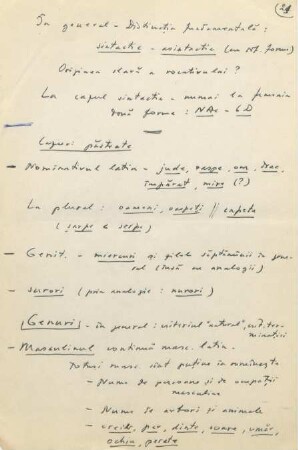 24
În general – Distincția fundamentală:
sintactic – asintactic (un sg. formă)
Originea slavă a vocativului?
La cazul sintactic – numai la feminin
două forme: NAc – GD
Cazuri păstrate
– Nominativul latin – jude, oaspe, om, drac,
împărat, mire (?)
La plural: oameni, oaspeți // capete
(șerpe – șerpi)
– Genit. – miercuri și zilele săptămânii în general
(însă cu analogii)
– surori (prin analogie: nurori)
[Genuri] – în general: criteriul "natural",
– Masculinul continuă masc. latin.
masc. sînt puține în românește
– Nume de persoane și de ocupații
masculine
– Nume de arburi și animale
– dinte, soare, umăr,
ochiu, perete